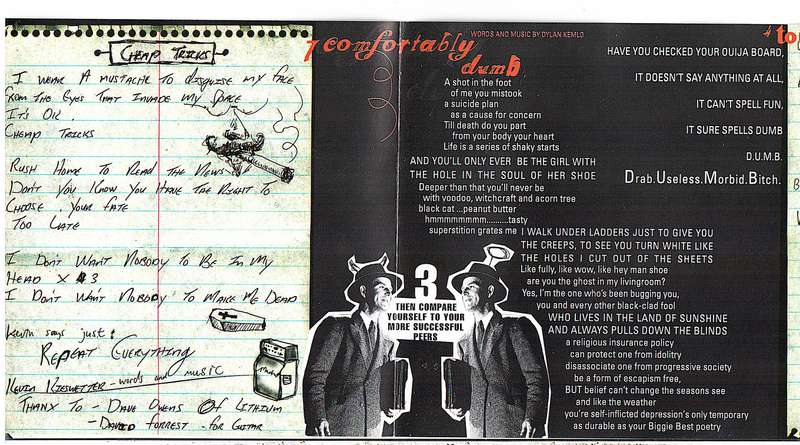 CHEAP TRICKS
I WEAR A MUSTACHE TO DISGUISE MY FACE
FROM THE EYES THAT INVADE MY SPACE
IT'S OK.
CHEAP TRICKS
RUSH HOME TO READ THE NEWS
DON'T YOU KNOW YOU HAVE THE RIGHT TO
CHOOSE. YOUR FATE
TOO LATE
I DON'T WANT NOBODY TO BE IN MY
HEAD X 3
I DON'T WANT NOBODY TO MAKE ME DEAD
Kevin says just:
REPEAT EVERYTHING
KEVIN KIESWETTER - words and music
THANX TO - DAVE OWENS OF LITHIUM
- DAVID FORREST - FOR GUITAR
7 comfortably
dumb
WORDS AND MUSIC BY DYLAN KEMLO
A shot in the foot
of me you mistook
a suicide plan
as a cause for concern
Till death do you part
from your body your heart
Life is a series of shaky starts
AND YOU'LL ONLY EVER BE THE GIRL WITH
THE HOLE IN THE SOUL OF HER SHOE
Deeper than that you'll never be
with voodoo, witchcraft and acorn tree
black cat ...peanut butter
hmmmmmmm..........tasty
superstition grates me
I WALK UNDER LADDERS JUST TO GIVE YOU
THE CREEPS, TO SEE YOU TURN WHITE LIKE
THE HOLES I CUT OUT OF THE SHEETS
Like fully, like wow, like hey man shoe
are you the ghost in my livingroom?
Yes, I'm the one who's been bugging you,
you and every other black-clad fool
WHO LIVES IN THE LAND OF SUNSHINE
AND ALWAYS PULLS DOWN THE BLINDS
a religious insurance policy
can protect one from idolitry
disassociate one from progressive society
be a form of escapism free,
BUT belief can't change the seasons see
and like the weather
you're self-inflicted depression's only temporary
as durable as your Biggie Best poetry
3
THEN COMPARE
YOURSELF TO YOUR
MORE SUCCESSFUL
PEERS
HAVE YOU CHECKED YOUR OUIJA BOARD,
IT DOESN'T SAY ANYTHING AT ALL,
IT CAN'T SPELL FUN,
IT SURE SPELLS DUMB
D.U.M.B.
Drab.Useless.Morbid.Bitch.
to